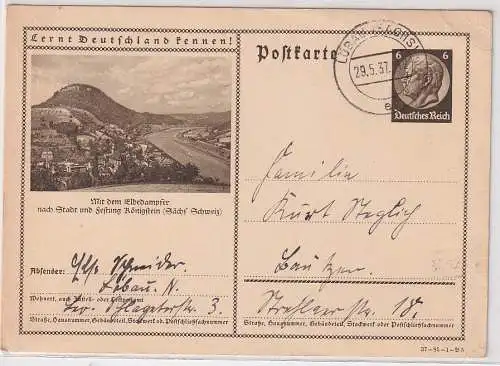 Lernt Deutschland kennen!
Postkarte
LÖBAU
29.5.37.
6 6
Deutsches Reich
Mit dem Elbedampfer
nach Stadt und Festung Königstein (Sächs. Schweiz)
Familie
Kurt Steglich
Bautzen
Str. 18.
Absender: Schneider.
Löbau.
Wohnort, auch Zustell- oder Leitpostamt
Schlageterstr. 3.
Straße, Hausnummer, Gebäudeteil, Stockwerk od. Postschließfachnummer
Straße, Hausnummer, Gebäudeteil, Stockwerk oder Postschließfachnummer